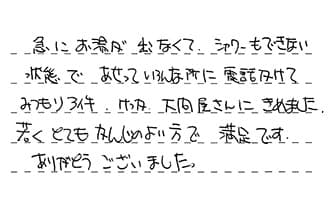 急にお湯が出なくて、シャワーもできない
状態であせっていろんな所に電話かけて
みつもり3件、けっか、大岡屋さんにきめました。
若くとてもかんじのよい方で満足です。
ありがとうございました。